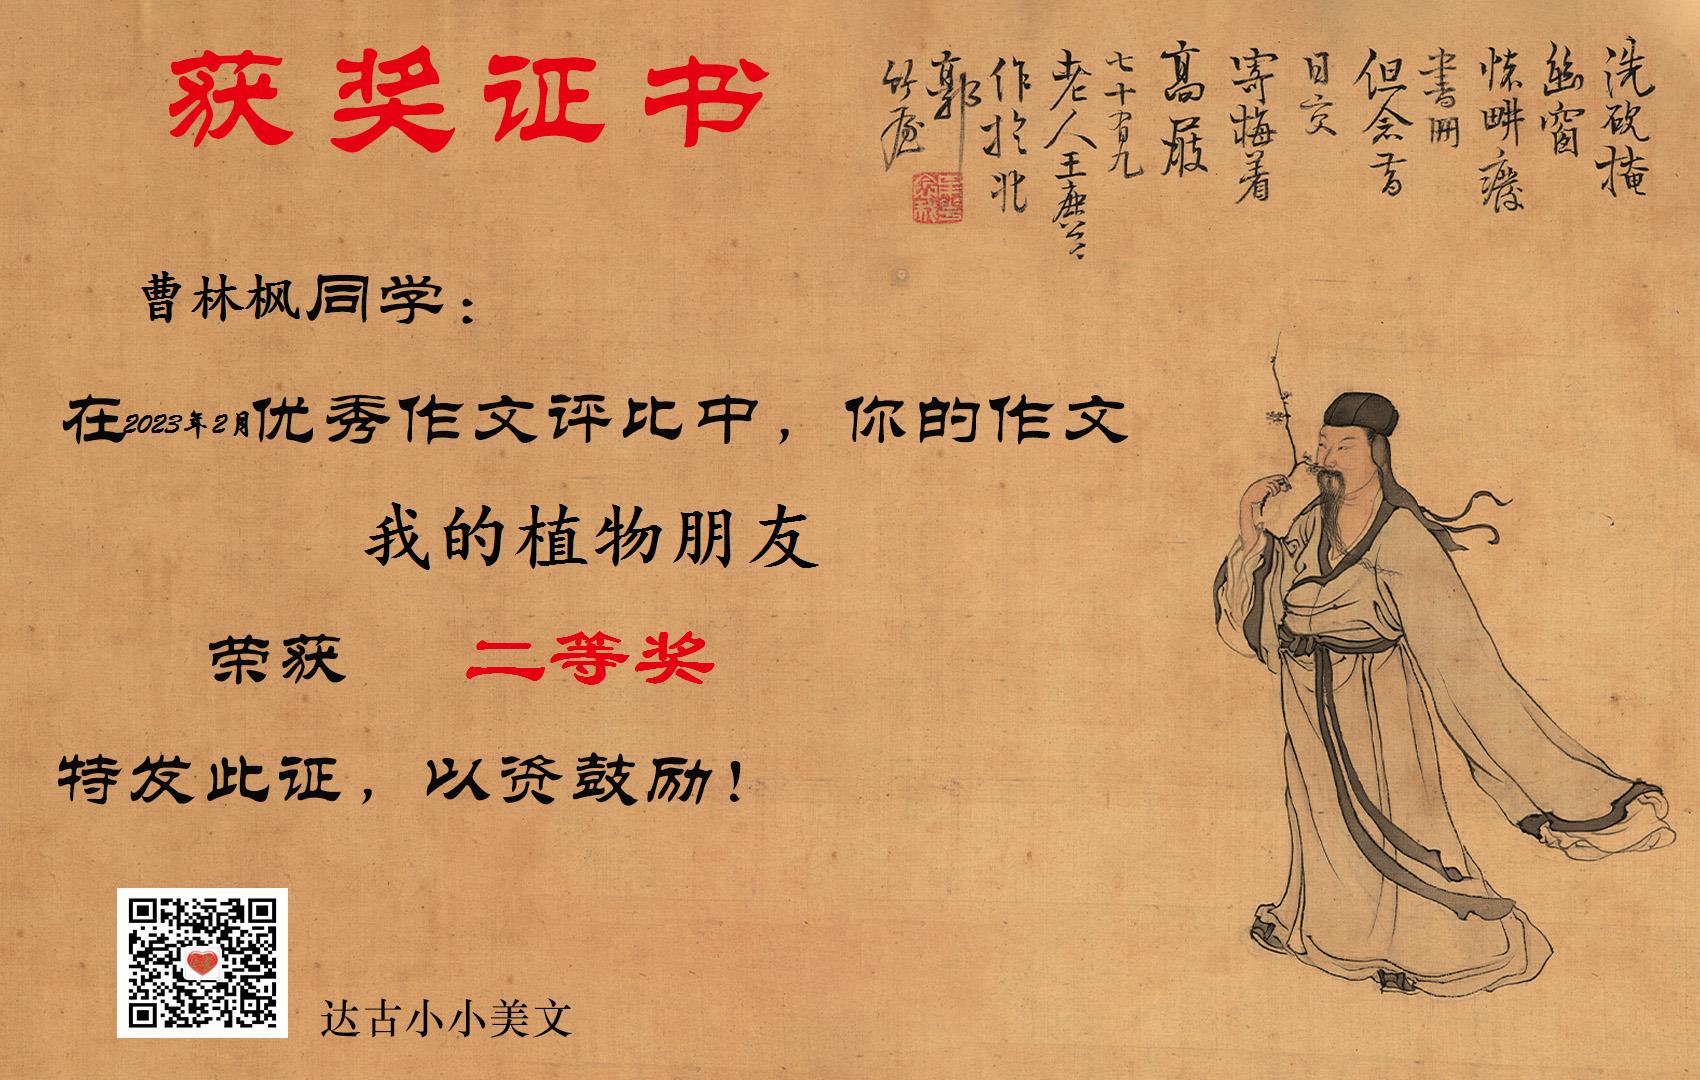 获奖证书
洗砚掩
幽窗
怀
書冊
但念昔
日交
寄梅着
高
七十有九
老人王
作於北
郭
竹
曹林枫同学：
在2023年2月优秀作文评比中，你的作文
我的植物朋友
荣获 二等奖
特发此证，以资鼓励！
达古小小美文